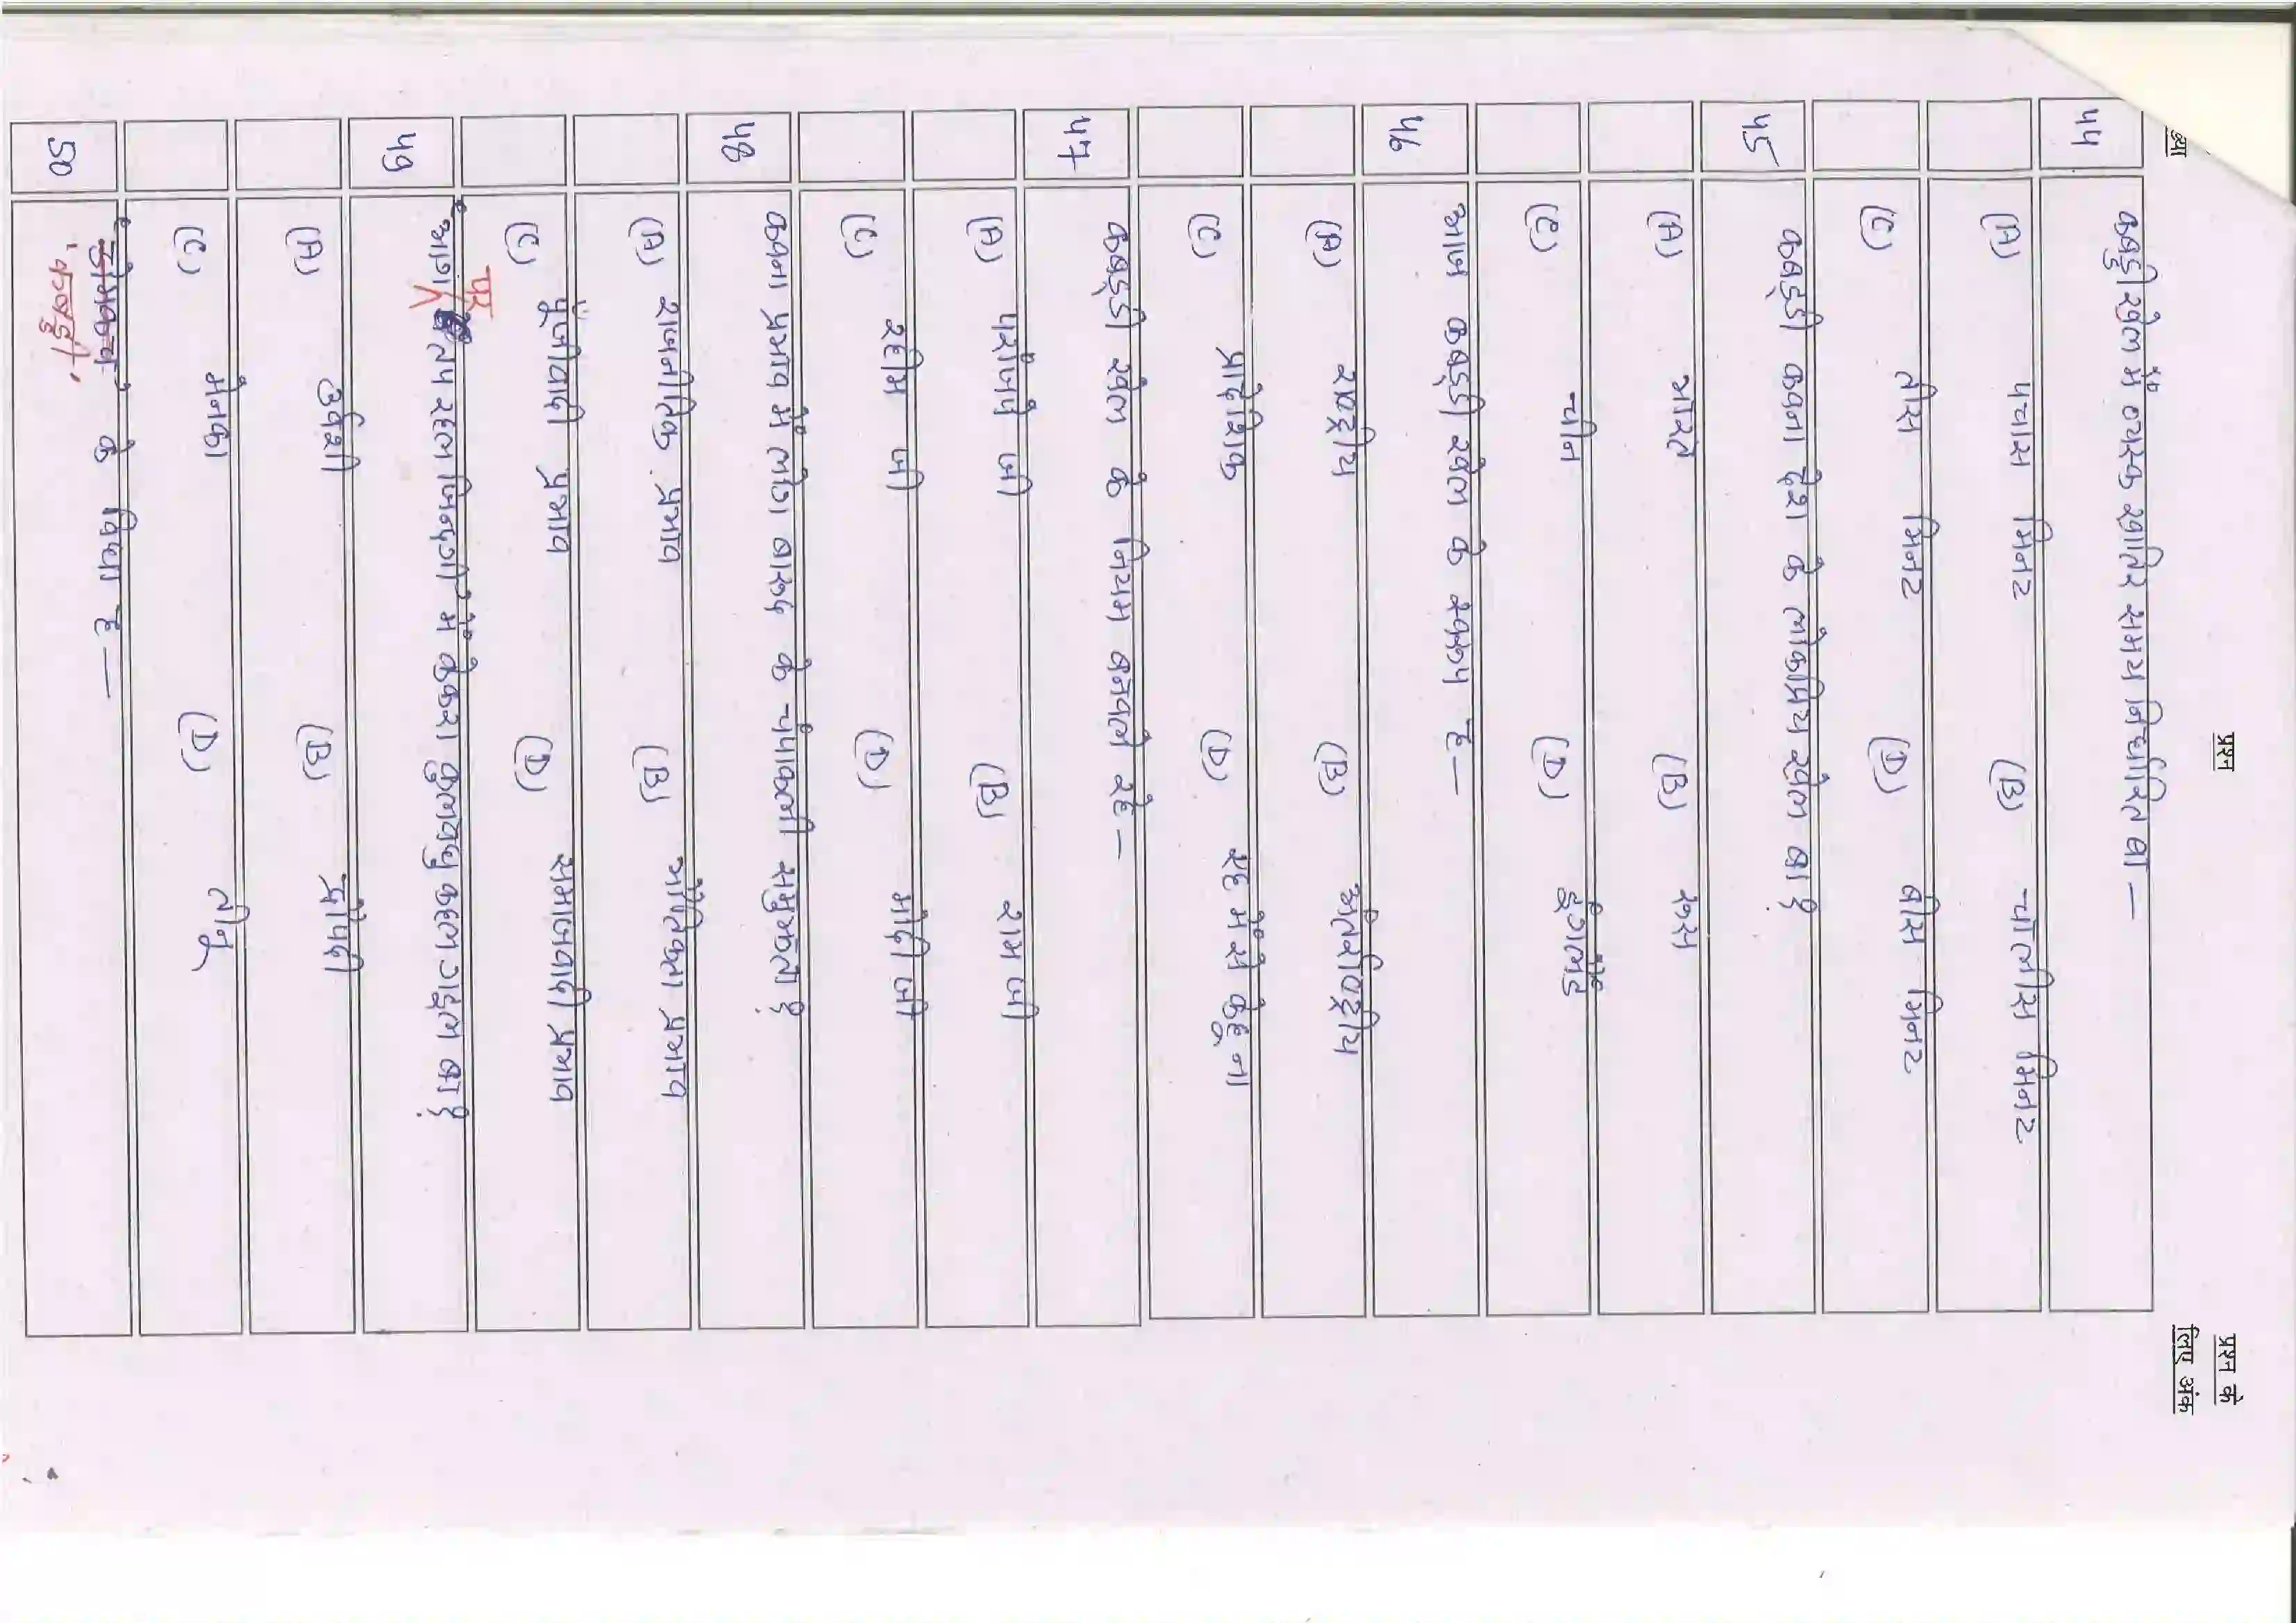 प्रश्न
प्रश्न के
लिए अंक
44 कबड्डी खेल में वयस्क खातिर समय निर्धारित बा —
(A) पचास मिनट (B) चालीस मिनट
(C) तीस मिनट (D) बीस मिनट
45 कबड्डी कवना देश के लोकप्रिय खेल बा ?
(A) भारत (B) रूस
(C) चीन (D) इंगलैंड
46 आज कबड्डी खेल के स्वरूप ह —
(A) राष्ट्रीय (B) अंतर्राष्ट्रीय
(C) प्रादेशिक (D) एह में से केहू ना
47 कबड्डी खेल के नियम बनवले रहे —
(A) परांजपे जी (B) राम जी
(C) रहीम जी (D) मोदी जी
48 कवना प्रभाव में लोग बारूद के चंपाकली समुझता ?
(A) राजनीतिक प्रभाव (B) भौतिकता प्रभाव
(C) पूंजीवादी प्रभाव (D) समाजवादी प्रभाव
49 आग पर तप रहल जिनगी में केकरा कुलवधु कहल गइल बा ?
(A) उर्वशी (B) द्रौपदी
(C) मेनका (D) तीनू
50 'कबड्डी' के विधा ह —